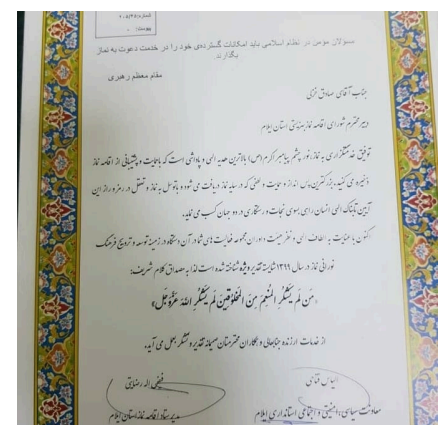 شماره: ۲۰۵/۴۵
پیوست: -
مسئولان مومن در نظام اسلامی باید امکانات گسترده‌ی خود را در خدمت دعوت به نماز
بگذارند
مقام معظم رهبری
جناب آقای صادق نری
دبیر محترم شورای اقامه نماز بهزیستی استان ایلام
توفیق خدمتگزاری به نماز، نور چشم پیامبر اکرم (ص) بالاترین هدیه الهی و پاداشی است که با حمایت و پشتیبانی از اقامه نماز
ذخیره می کنید، بزرگترین پاداش و حمایت و لطفی که در سایه نماز دریافت می شود و با توسل به نماز و تعقل در رمز و راز این
آیین تابناک الهی انسان راهی بسوی نجات و رستگاری در دو جهان کسب می نماید.
اکنون با عنایت به الطاف الهی و نظر هیئت داوران مجموعه فعالیت های شما در آن دستگاه در زمینه توسعه و ترویج فرهنگ
نورانی نماز در سال ۱۳۹۹ شایسته تقدیر ویژه شناخته شده است لذا به مصداق کلام شریف:
«مَن لَم یَشکُرِ المُنعِمَ مِنَ المَخلوقینَ لَم یَشکُرِ اللهَ عَزَّوَجَل»
از خدمات ارزنده جنابعالی و همکاران محترمتان صمیمانه تقدیر و تشکر بعمل می آید.
الیاس قنادی
فتحی اله رضایتی
معاونت سیاسی، امنیتی و اجتماعی استانداری ایلام
مدیر ستاد اقامه نماز استان ایلام